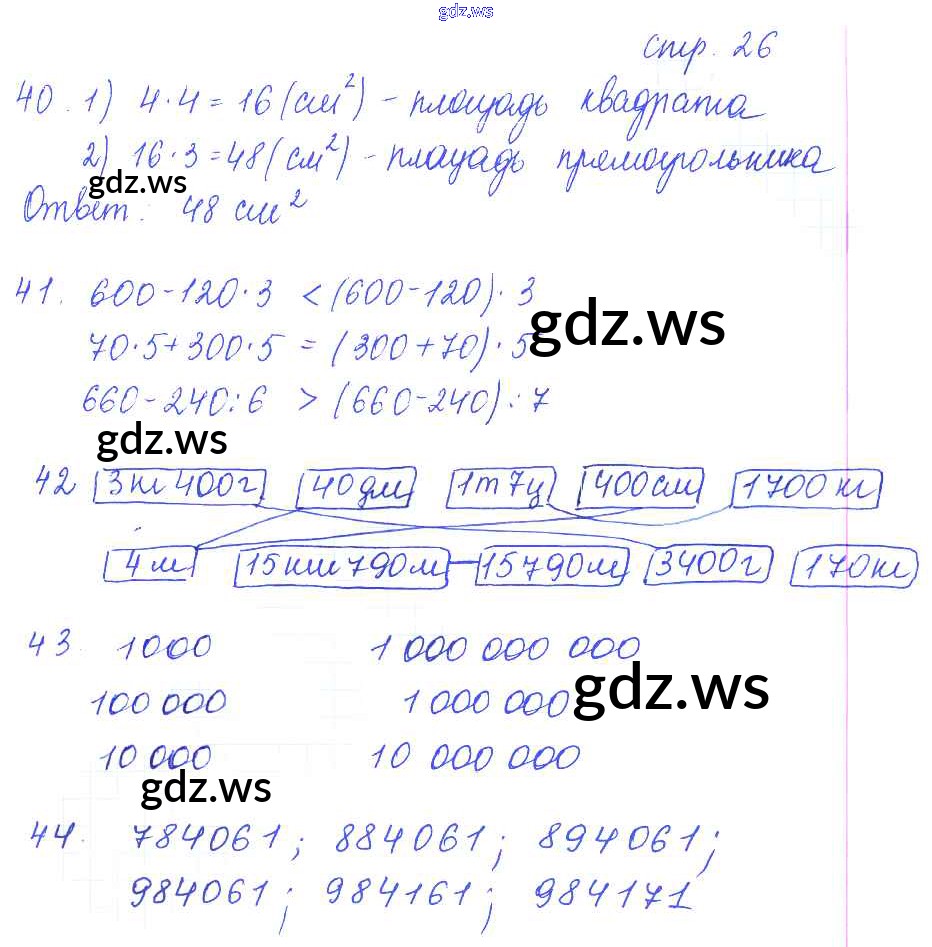 gdz.ws
стр. 26
40. 1) 4·4=16(см²) - площадь квадрата
2) 16·3=48(см²) - площадь прямоугольника
gdz.ws
Ответ: 48 см²
41. 600-120·3 < (600-120)·3
gdz.ws
70·5+300·5 = (300+70)·5
660-240:6 > (660-240):7
gdz.ws
42 3кг 400г 40дм 1т 7ц 400см 1700кг
4м 15км 790м 15790м 3400г 170кг
43. 1000 1 000 000 000
100 000 1 000 000
gdz.ws
10 000 10 000 000
gdz.ws
44. 784061; 884061; 894061;
984061; 984161; 984171